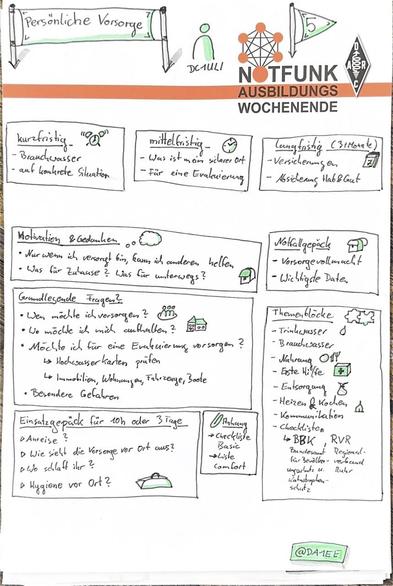 Persönliche Vorsorge
DC1ULI
5
NOTFUNK
AUSBILDUNGS
WOCHENENDE
DARC
kurzfristig
- Brauchwasser
- auf konkrete Situation
mittelfristig
- Was ist mein sicherer Ort
- Für eine Evakuierung
Langfristig (3+Monate)
- Versicherungen
- Absicherung Hab&Gut
Motivation & Gedanken
• Nur wenn ich versorgt bin, kann ich anderen helfen
• Was für Zuhause? Was für unterwegs?
Notfallgepäck
- Vorsorgevollmacht
- Wichtigste Daten
Grundlegende Fragen?
• Wen möchte ich versorgen?
• Wo möchte ich mich aufhalten?
• Möchte ich für eine Evakuierung vorsorgen?
↳ Hochwasserkarten prüfen
↳ Immobilien, Wohnungen, Fahrzeuge, Boote
• Besondere Gefahren
Themenblöcke
- Trinkwasser
- Brauchwasser
- Nahrung
- Erste Hilfe
- Entsorgung
- Heizen & Kochen
- Kommunikation
- Checklisten
↳ BBK, RVR
Bundesamt für Bevölkerungsschutz und Katastrophenschutz
Regionalverband Ruhr
Einsatzgepäck für 10h oder 3 Tage
▷ Anreise?
▷ Wie sieht die Vorsorge vor Ort aus?
▷ Wo schlaft ihr?
▷ Hygiene vor Ort?
→ Checkliste
Basic
→ Liste
Comfort
@DA1EE